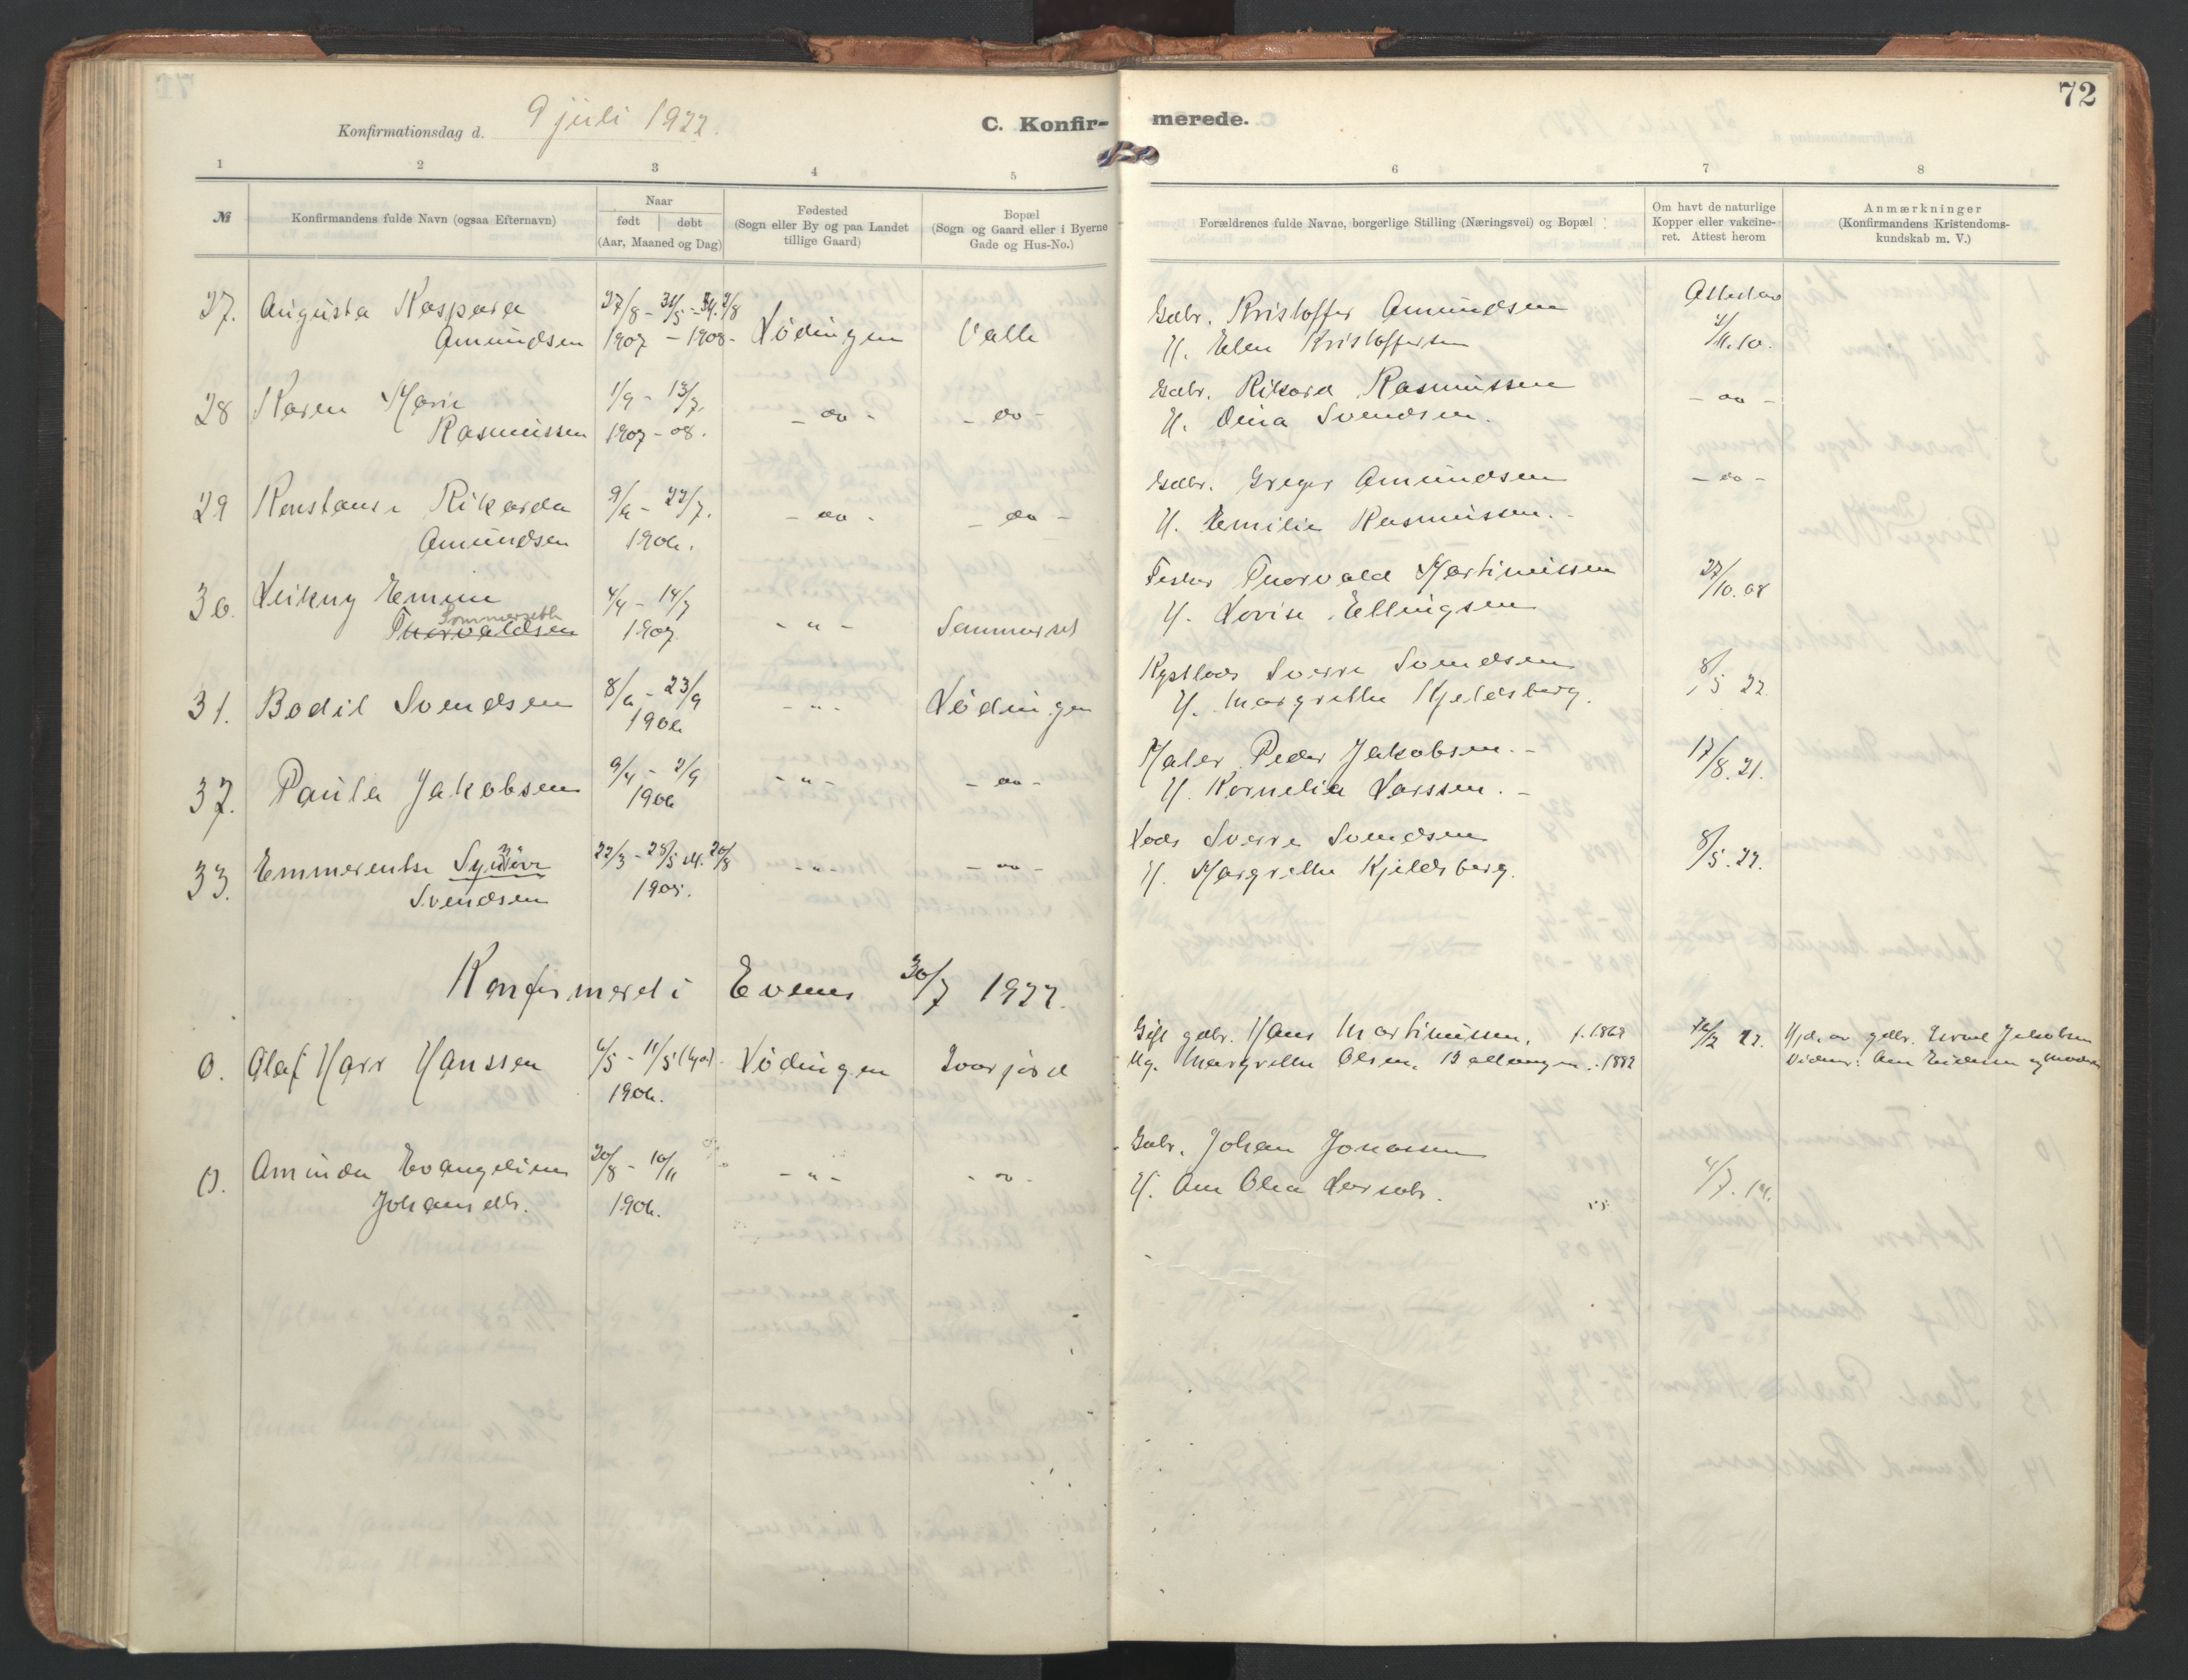 72
Konfirmationsdag d. 9 juli 1922.
C. Konfir-
merede.
1 2 3 4 5 6 7 8
№
Konfirmandens fulde Navn (ogsaa Efternavn)
Naar
født døbt
(Aar, Maaned og Dag)
Fødested
(Sogn eller By og paa Landet
tillige Gaard)
Bopæl
(Sogn og Gaard eller i Byerne
Gade og Hus-No.)
Forældrenes fulde Navne, borgerlige Stilling (Næringsvei) og Bopæl
Om havt de naturlige
Kopper eller vakcine-
ret. Attest herom
Anmærkninger
(Konfirmandens Kristendoms-
kundskab m. V.)
27. Augusta Kaspara 27/8 - 31/5 - 2/8 Gdbr. Kristoffer Amundsen
Amundsen 1907 - 1908 - Lødingen Valle H. Elen Kristoffersen
28 Karen Marie 1/9 - 13/7. - do - - do - Gdbr. Rikard Rasmussen - do -
Rasmussen 1907 - 08. H. Dina Svendsen.
29 Konstanse Rikarda 9/6 - 22/7. - do - - do - Gdbr. Greger Amundsen - do -
Amundsen 1906. H. Emilie Rasmussen. -
30. Leikny Emine 4/4 - 14/7 Fisker Thorvald Martinussen 27/10.08
Sommerseth
Thorvaldsen 1907 - " - Sommerset H. Lovise Ellingsen
31. Bodil Svendsen 8/6 - 23/9 - " - Lødingen Kystlods Sverre Svendsen 8/5 22
1906 H. Margrethe Kjeldsberg.
32. Paula Jakobsen 9/4 - 2/9 - " - - do - Maler Peder Jakobsen. - 17/8.21.
1906 H. Kornelia Larssen. -
33. Emmerentse Synøve 22/3 - 28/5 st. 20/8 - " - - do - Lods Sverre Svendsen 8/5.22.
Svendsen 1905. H. Margrethe Kjeldsberg.
Konfirmert i Evenes 30/7 1922.
0. Olaf Harr Hanssen 6/5 - 11/5 Lødingen Gift gdbr. Hans Martinussen, f. 1869
1906. Ug. Margrethe Olsen, Ballangen. 1882
0. Aminda Evangeline 20/8 - 10/11 - " - - do - Gdbr. Johan Jonassen
Johansdtr. 1906. H. Ane Olea Larsdtr.